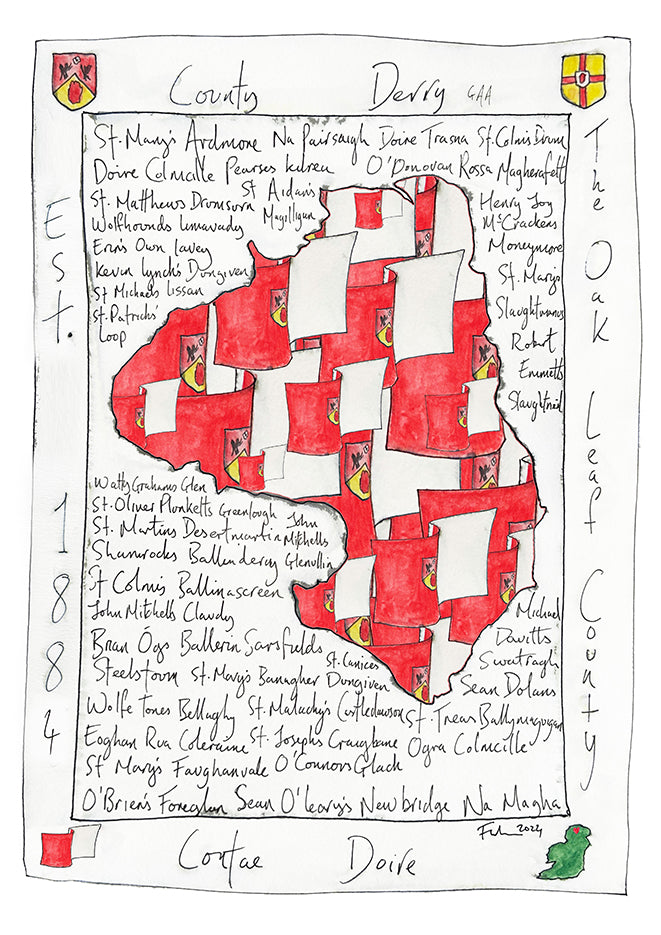 County Derry GAA
Est. 1884
The Oak Leaf County
St. Mary's Ardmore Na Piarsaigh Doire Trasna St. Colm's Drum
Doire Colmcille Pearses Kilrea O'Donovan Rossa Magherafelt
St. Matthews Drumsurn St Aidan's Magilligan
Wolfhounds Limavady
Erin's Own Lavey
Kevin Lynch's Dungiven
St Michaels Lissan
St. Patricks' Loop
Henry Joy
McCrackens
Moneymore
St. Marys
Slaughtmanus
Robert
Emmetts
Slaughtneil
Watty Grahams Glen
St. Oliver Plunketts Greenlough
St. Martins Desertmartin John Mitchells Glenullin
Shamrocks Ballinderry
St Colm's Ballinascreen
John Mitchells Claudy
Brian Ógs Ballerin Sarsfields
Steelstown St. Mary's Banagher St. Canices Dungiven
Michael
Davitts
Swatragh
Sean Dolans
Wolfe Tones Bellaghy St. Malachy's Castledawson St. Treas Ballymaguigan
Eoghan Rua Coleraine St. Josephs Craigbane Ogra Colmcille
St Mary's Faughanvale O'Connors Glack
O'Brien's Foreglen Sean O'Leary's Newbridge Na Magha
2024
Contae Doire